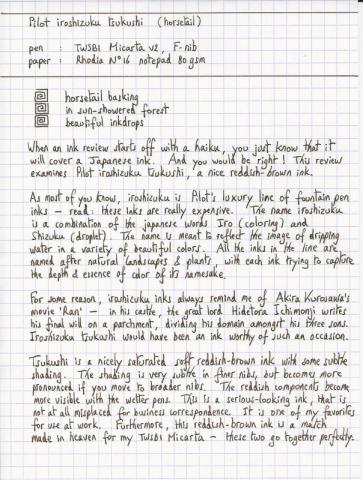 Pilot iroshizuku tsukushi (horsetail)
pen : TWSBI Micarta v2, F-nib
paper : Rhodia N°16 notepad 80 gsm
horsetail basking
in sun-showered forest
beautiful inkdrops
When an ink review starts off with a haiku, you just know that it
will cover a Japanese ink. And you would be right! This review
examines Pilot iroshizuku tsukushi, a nice reddish-brown ink.
As most of you know, iroshizuku is Pilot's luxury line of fountain pen
inks - read: these inks are really expensive. The name iroshizuku
is a combination of the japanese words Iro (coloring) and
Shizuku (droplet). The name is meant to reflect the image of dripping
water in a variety of beautiful colors. All the inks in the line are
named after natural landscapes & plants, with each ink trying to capture
the depth & essence of color of its namesake.
For some reason, iroshizuku inks always remind me of Akira Kurosawa's
movie 'Ran' - in his castle, the great lord Hidetora Ichimonji writes
his final will on a parchment, dividing his domain amongst his three sons.
Iroshizuku tsukushi would have been an ink worthy of such an occasion.
Tsukushi is a nicely saturated soft reddish-brown ink with some subtle
shading. The shading is very subtle in finer nibs, but becomes more
pronounced if you move to broader nibs. The reddish components become
more visible with the wetter pens. This is a serious-looking ink, that is
not at all misplaced for business correspondence. It is one of my favorites
for use at work. Furthermore, this reddish-brown ink is a match
made in heaven for my TWSBI Micarta - these two go together perfectly.